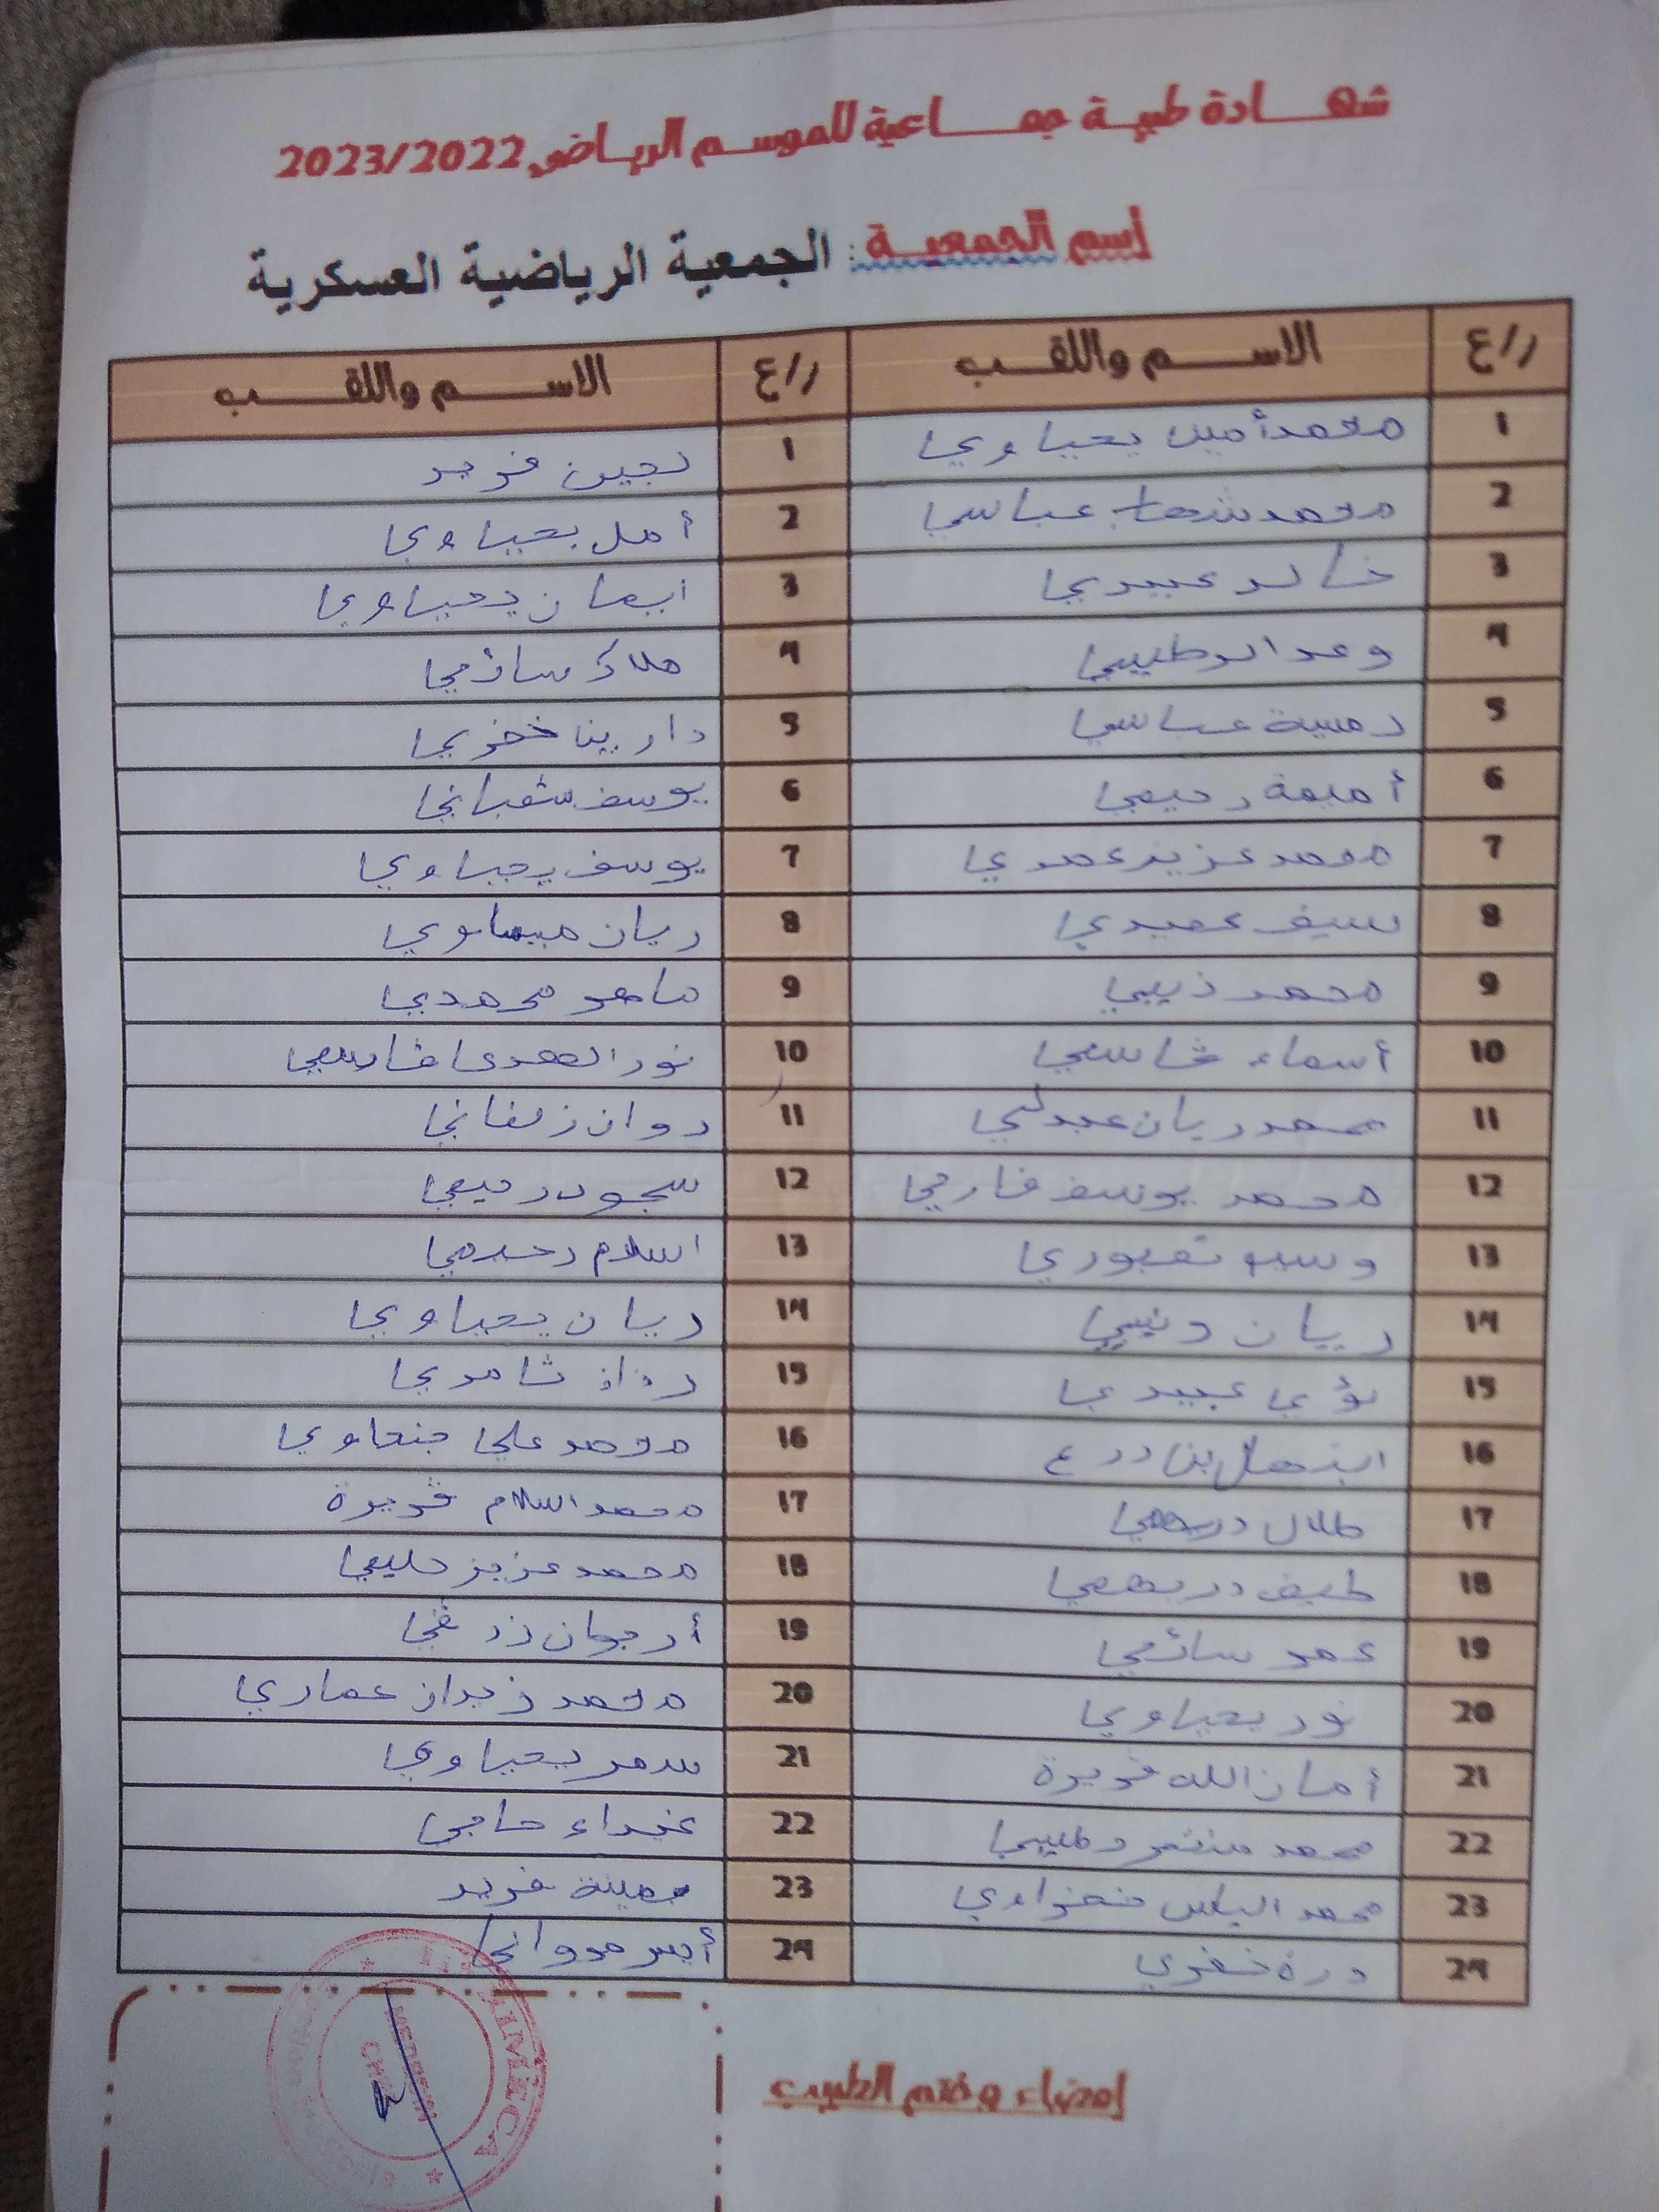 شهادة طبية جماعية للموسم الرياضي 2023/2022
إسم الجمعية : الجمعية الرياضية العسكرية
ر/ع الاسم واللقب ر/ع الاسم واللقب
1 محمد أمين يحياوي 1 لجين فريد
2 محمد شهاب عباسي 2 أمل يحياوي
3 خالد عبيدي 3 ايمان يحياوي
4 وعد الوطيبي 4 ملاك سائمي
5 رمسة عباسي 5 دارين خفري
6 أميمة رحيمي 6 يوسف شعباني
7 محمد عزيز عمري 7 يوسف يحياوي
8 سيف عميدي 8 ريان ميساوي
9 محمد ذيبي 9 ماهر محمدي
10 أسماء قاسمي 10 نور الهدى قاسمي
11 محمد ريان عبدلي 11 روان زلفاني
12 محمد يوسف فارحي 12 سجود رحيمي
13 تعبوري 13 اسلام رحيمي
14 ريان دنيبي 14 ريان يحياوي
15 لؤي عبيدي 15 رزان ثامري
16 ابتهال بن درع 16 محمد علي جنحاوي
17 طلال دريهمي 17 محمد اسلام قريرة
18 طيف دريهمي 18 محمد عزيز حليمي
19 عمر سائمي 19 أرجوان زرقي
20 نور يحياوي 20 محمد زيدان عماري
21 أمان الله قريرة 21 سمر يحياوي
22 محمد منتصر وطيبي 22 غيداء حاجي
23 محمد الياس خضراوي 23 يمينة فريد
24 درة خفري 24 أيسر مرواني
إمضاء وختم الطبيب